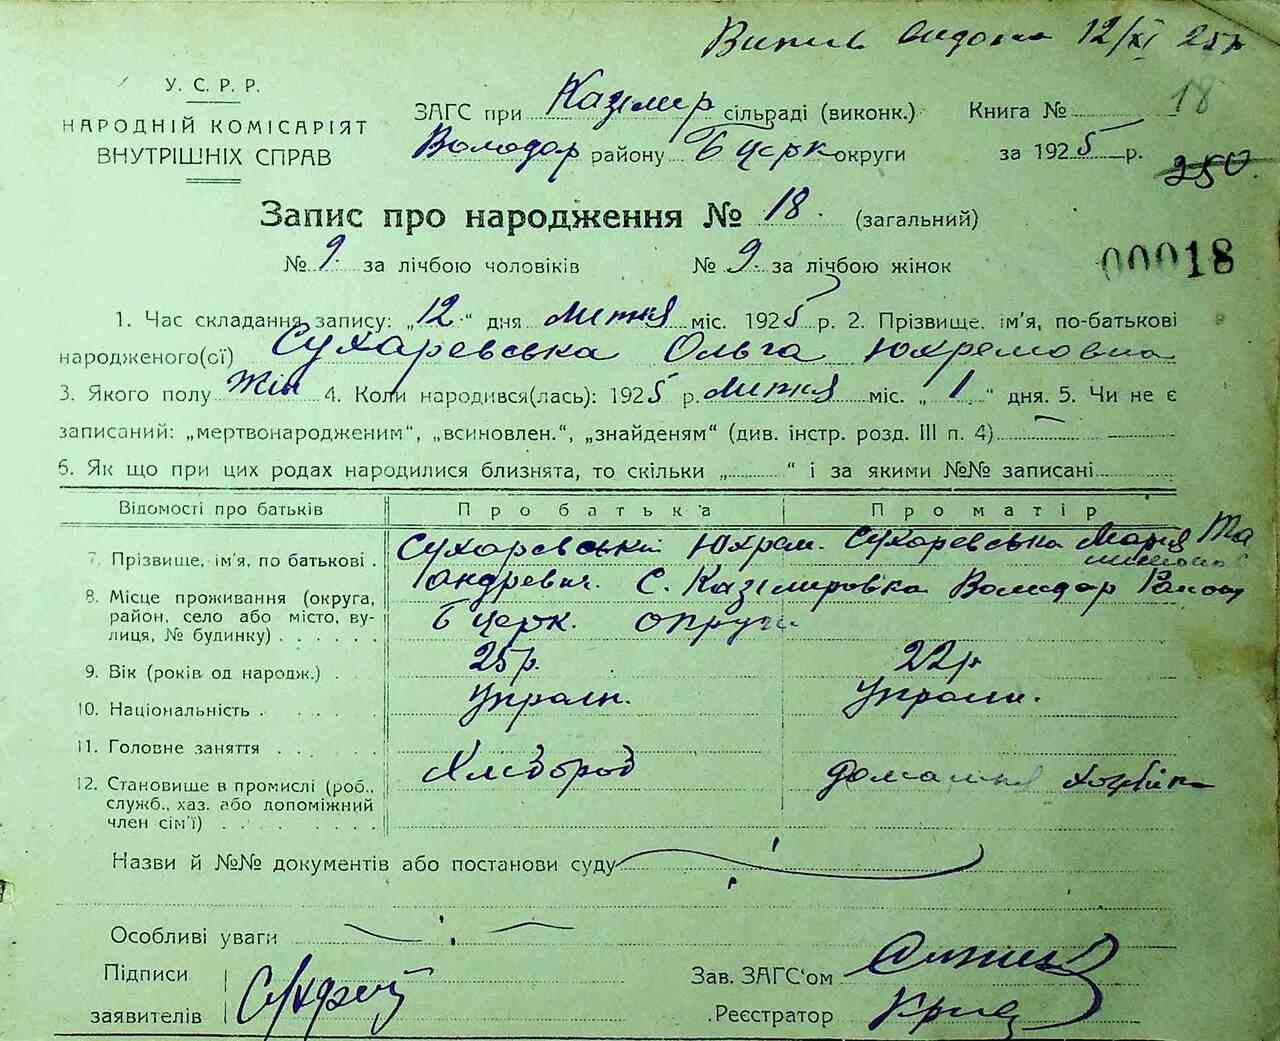 Витяг видано 12/XI 25р
18
У. С. Р. Р.
НАРОДНІЙ КОМІСАРІЯТ
ВНУТРІШНІХ СПРАВ
ЗАГС при Казімир сільраді (виконк.) Книга №
Володар району Б Церк округи за 1925 р.
250.
Запис про народження № 18. (загальний)
№ 9. за лічбою чоловіків № 9. за лічбою жінок
00018
1. Час складання запису: „12“ дня Лютня міс. 1925 р. 2. Прізвище, ім'я, по-батькові
народженого(сі) Сухаревська Ольга Юхремовна
3. Якого полу Жін 4. Коли народився(лась): 1925 р. Лютня міс. „ 1 “ дня. 5. Чи не є
записаний: „мертвонародженим“, „всиновлен.“, „знайденям“ (див. інстр. розд. III п. 4)
6. Як що при цих родах народилися близнята, то скільки „ “ і за якими №№ записані
Відомості про батьків Про батька Про матір
7. Прізвище, ім'я, по батькові . Сухаревській Юхрем. Сухаревська Мария
Андревич. С. Казімировка Володар Району
8. Місце проживання (округа,
район, село або місто, ву-
лиця, № будинку) . . . . . . Б Церк. округи
9. Вік (років од народж.) . 25р. 22р
10. Національність . . . . . Украін. Украін.
11. Головне заняття . . . . .
Хлібороб домашня хазяйка
12. Становище в промислі (роб.,
служб., хаз. або допоміжний
член сім'ї) . . . . . . . .
Назви й №№ документів або постанови суду
Особливі уваги
Підписи
заявителів
Зав. ЗАГС'ом
Реєстратор